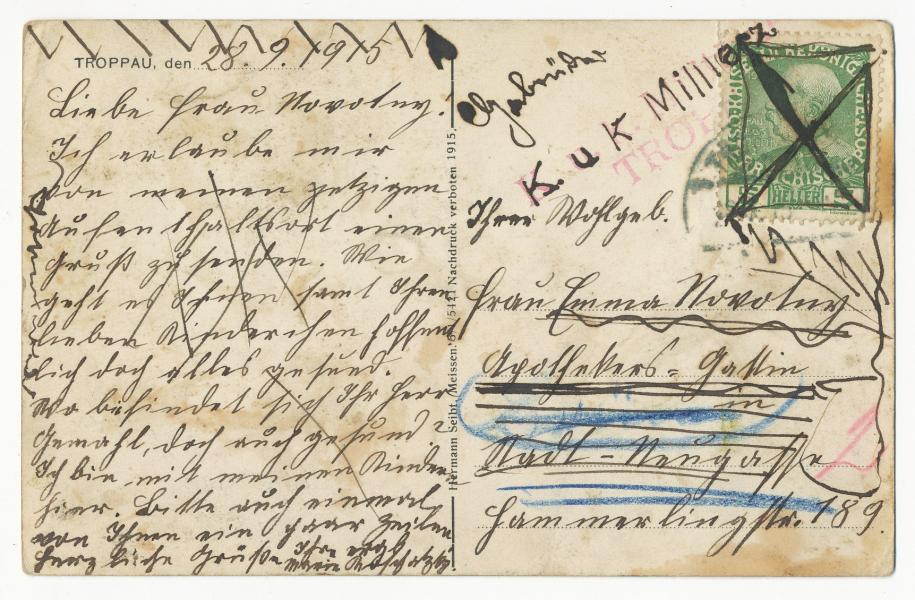 TROPPAU, den 28.9.1915
Liebe Frau Novotny!
Ich erlaube mir
von meinen jetzigen
Aufenthaltsort einen
Gruß zu senden. Wie
geht es Ihnen samt Ihren
lieben Kinderchen hoffent
lich doch alles gesund.
Wo befindet sich Ihr Herr
Gemahl, doch auch gesund?
Ich bin mit meinen Kinder
hier. Bitte auch einmal
von Ihnen ein paar Zeilen
herzliche Grüße Ihre erg.
Marie
Hermann Seibt, Meissen. 5421 Nachdruck verboten 1915.
Gebrüder
K. u K Millionärz
TRO
HELLER
Ihrer Wohlgeb.
Frau Emma Novotny
Apothekers-Gattin
in
Stadt-Neugasse
Hammerlingstr. 189.